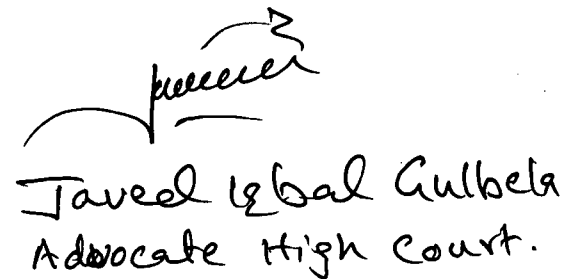 Javed Iqbal Gulbela
Advocate High Court.